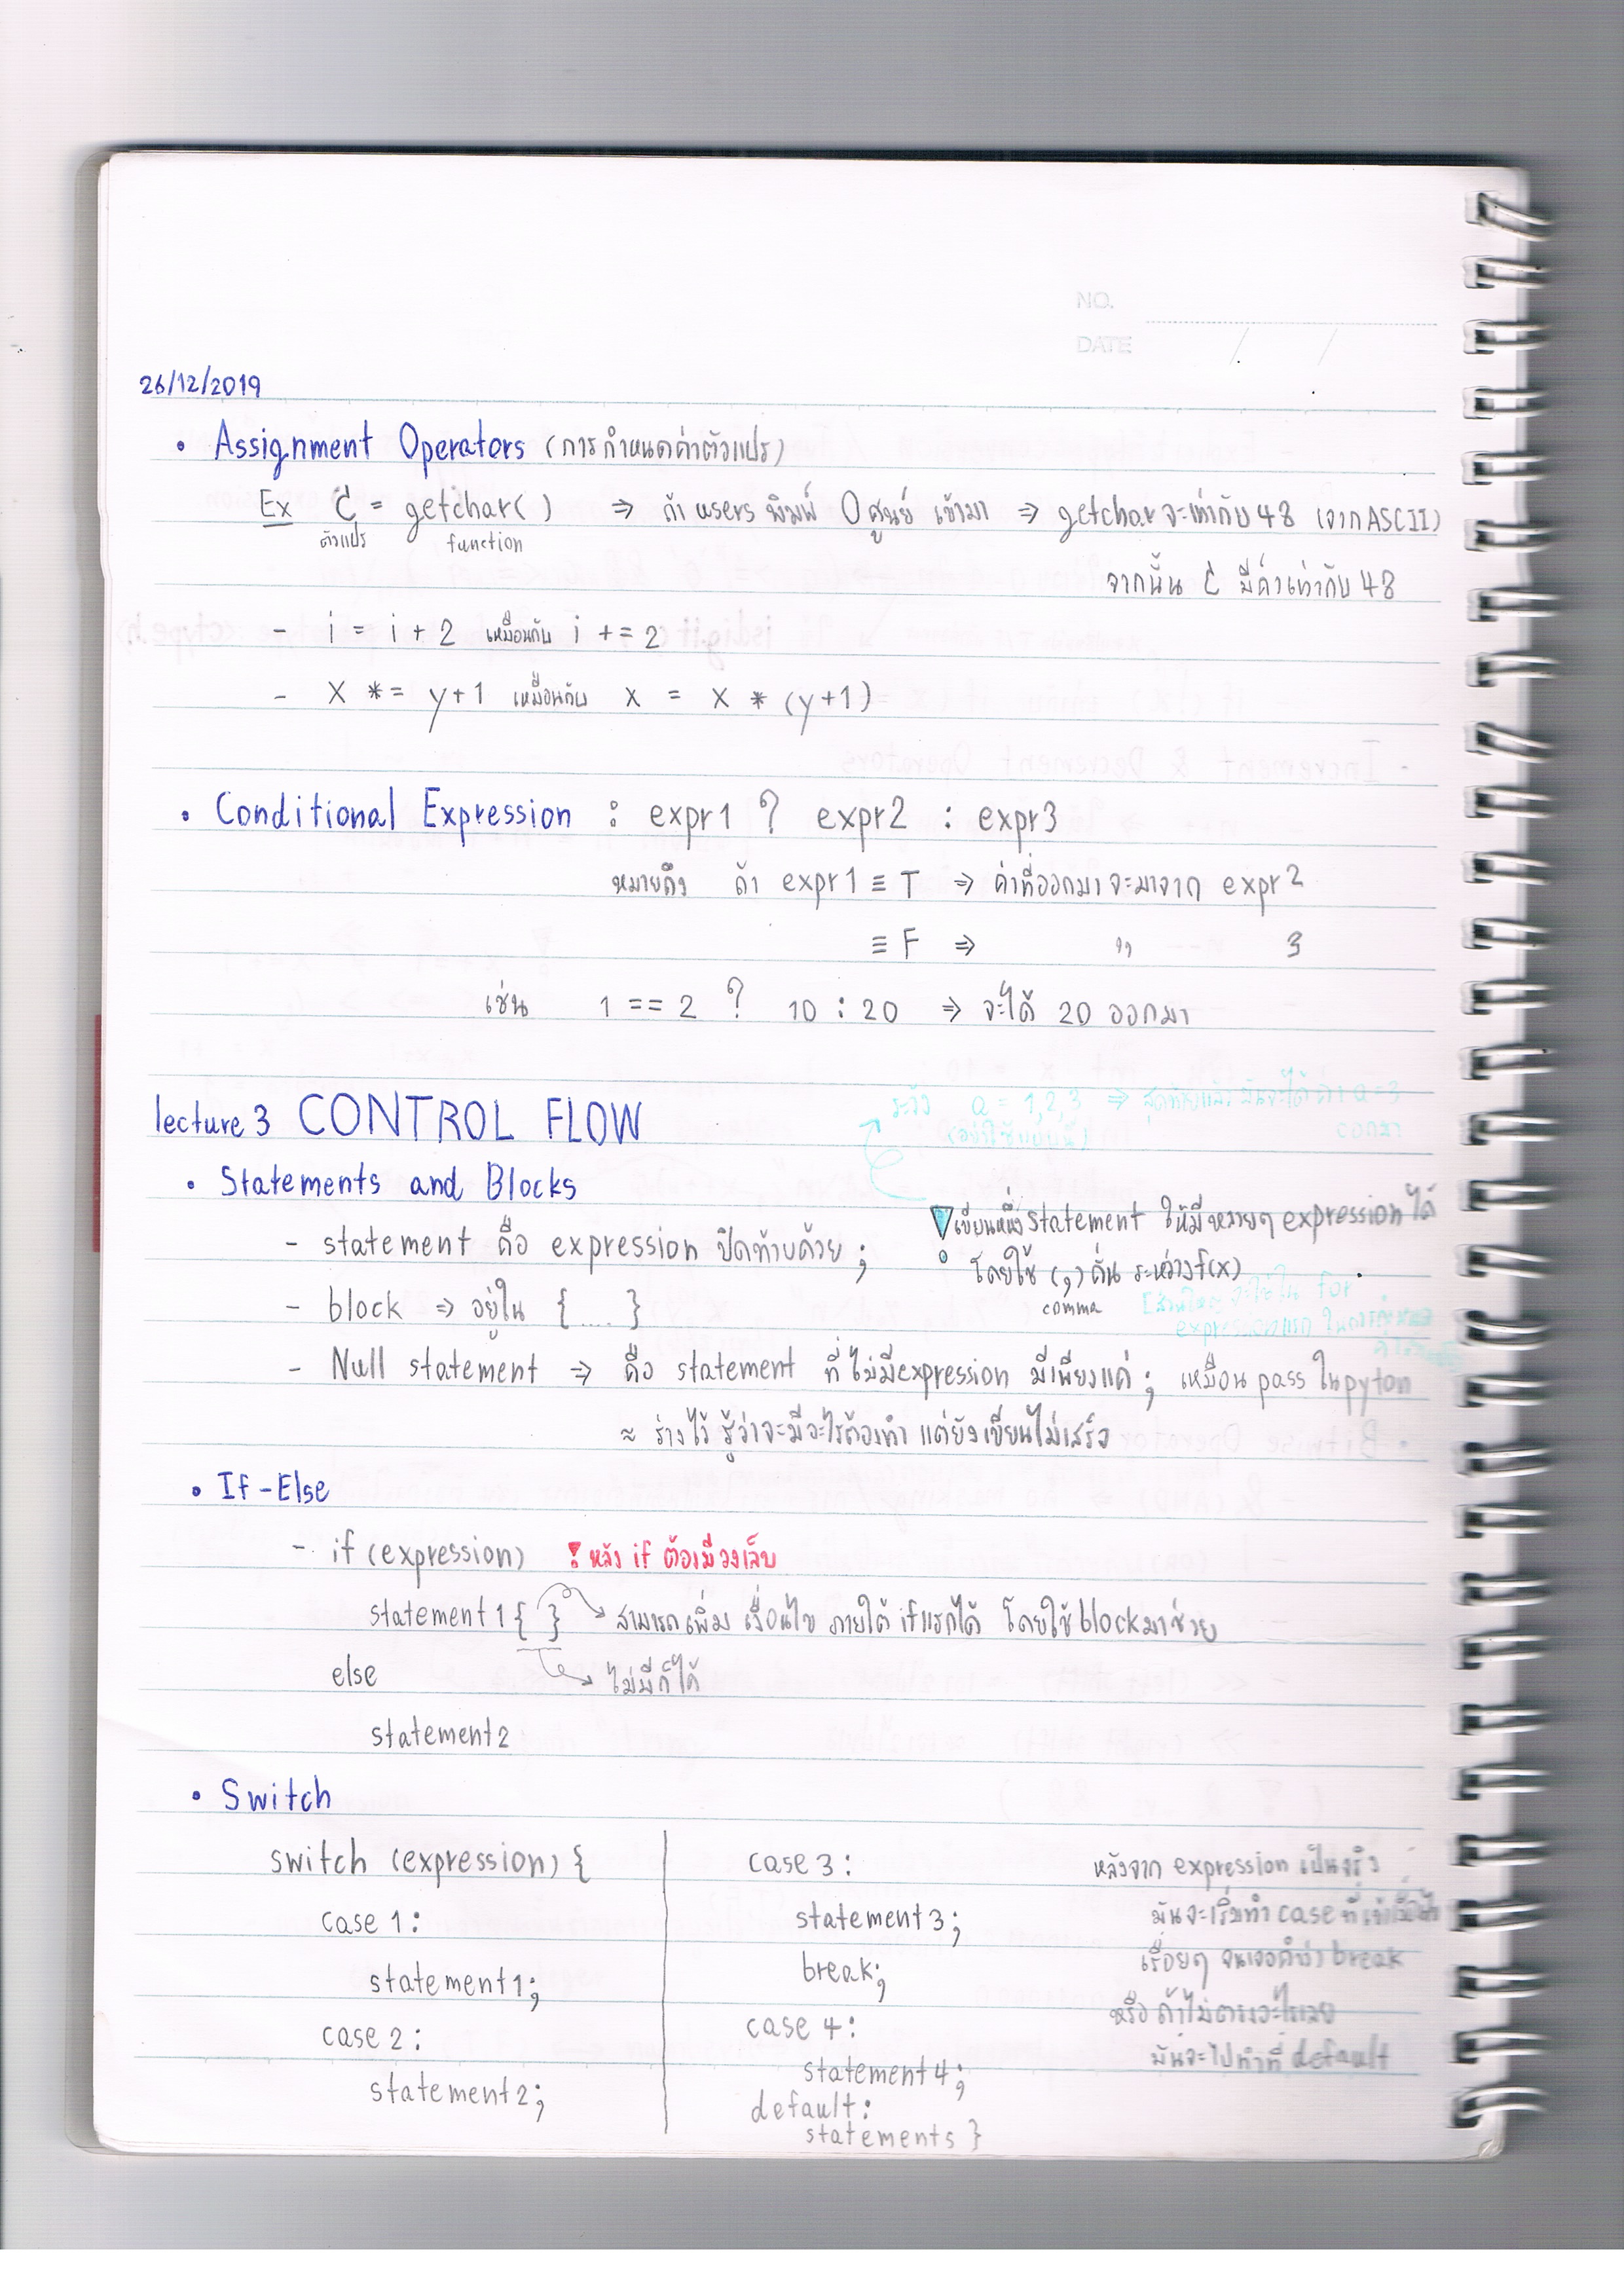 NO.
DATE / /
26/12/2019
• Assignment Operators (การกำหนดค่าตัวแปร)
Ex c = getchar( ) ⇒ ถ้า users พิมพ์ 0 ศูนย์ เข้ามา ⇒ getchar จะเท่ากับ 48 (จาก ASCII)
ตัวแปร function
จากนั้น c มีค่าเท่ากับ 48
- i = i + 2 เหมือนกับ i += 2
- X *= y+1 เหมือนกับ x = x * (y+1)
• Conditional Expression : expr1 ? expr2 : expr3
หมายถึง ถ้า expr1 ≡ T ⇒ ค่าที่ออกมาจะมาจาก expr2
≡ F ⇒ " 3
เช่น 1 == 2 ? 10 : 20 ⇒ จะได้ 20 ออกมา
ระวัง a = 1,2,3 ⇒ สุดท้ายแล้วมันจะได้ค่า a=3
ออกมา
lecture 3 CONTROL FLOW
• Statements and Blocks
เขียนหนึ่ง statement ให้มีหลายๆ expression ได้
- statement คือ expression ปิดท้ายด้วย ;
โดยใช้ (,) คั่น ระหว่าง f(x)
comma
- block ⇒ อยู่ใน { .... }
[ส่วนใหญ่ จะใช้ใน for
expression แรก ในการกำหนด
- Null statement ⇒ คือ statement ที่ไม่มี expression มีเพียงแค่ ; เหมือน pass ใน pyton
≈ ร่างไว้ รู้ว่าจะมีอะไรต้องทำ แต่ยังเขียนไม่เสร็จ
• If-Else
- if (expression) ! หลัง if ต้องมีวงเล็บ
statement1 { } → สามารถเพิ่ม เงื่อนไข ภายใต้ if แรกได้ โดยใช้ block มาช่วย
else → ไม่มีก็ได้
statement2
• Switch
switch (expression) {
case 1:
statement1;
case 2:
statement2;
case 3:
statement3;
break;
case 4:
statement4;
default:
statements }
หลังจาก expression เป็นจริง
มันจะเริ่มทำ case ที่
เรื่อยๆ จนเจอคำว่า break
หรือ ถ้าไม่ตรงอะไรเลย
มันจะไปทำที่ default